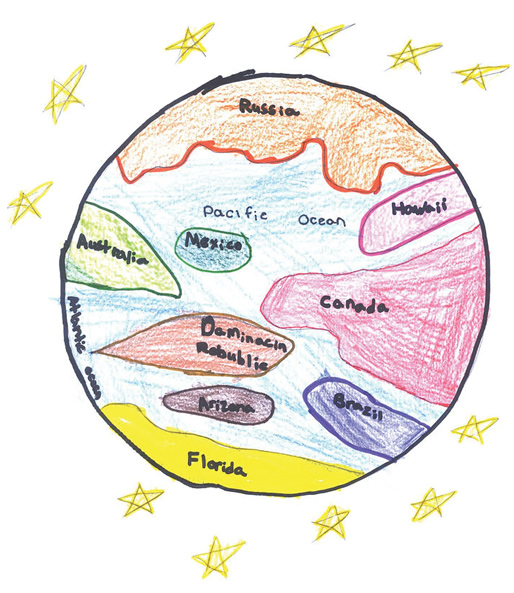 Russia
Pacific Ocean
Hawaii
Australia
Mexico
Canada
Atlantic ocean
Daminacin
Rebublic
Arizona
Brazil
Florida